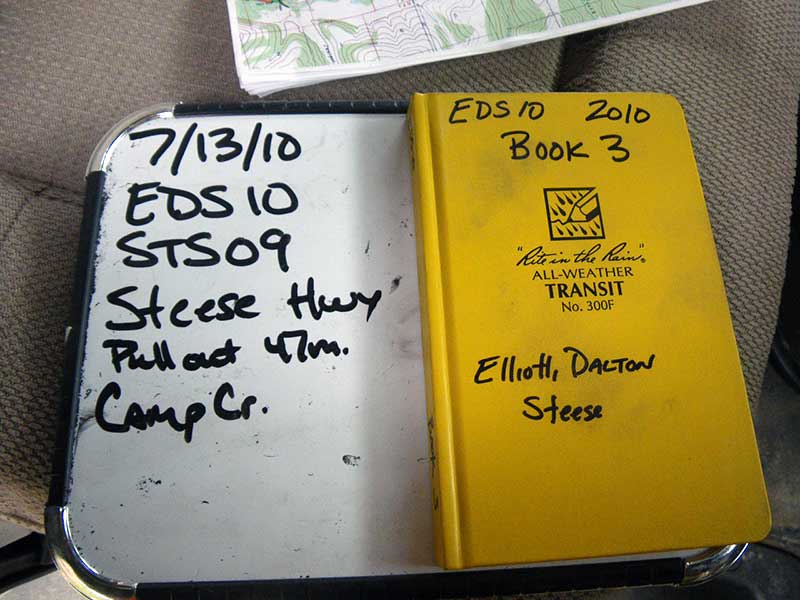 7/13/10
EDS10
STS09
Steese Hwy
Pullout 47m.
Camp Cr.
EDS10 2010
Book 3
"Rite in the Rain"®
ALL-WEATHER
TRANSIT
No. 300F
Elliott, DALTON
Steese